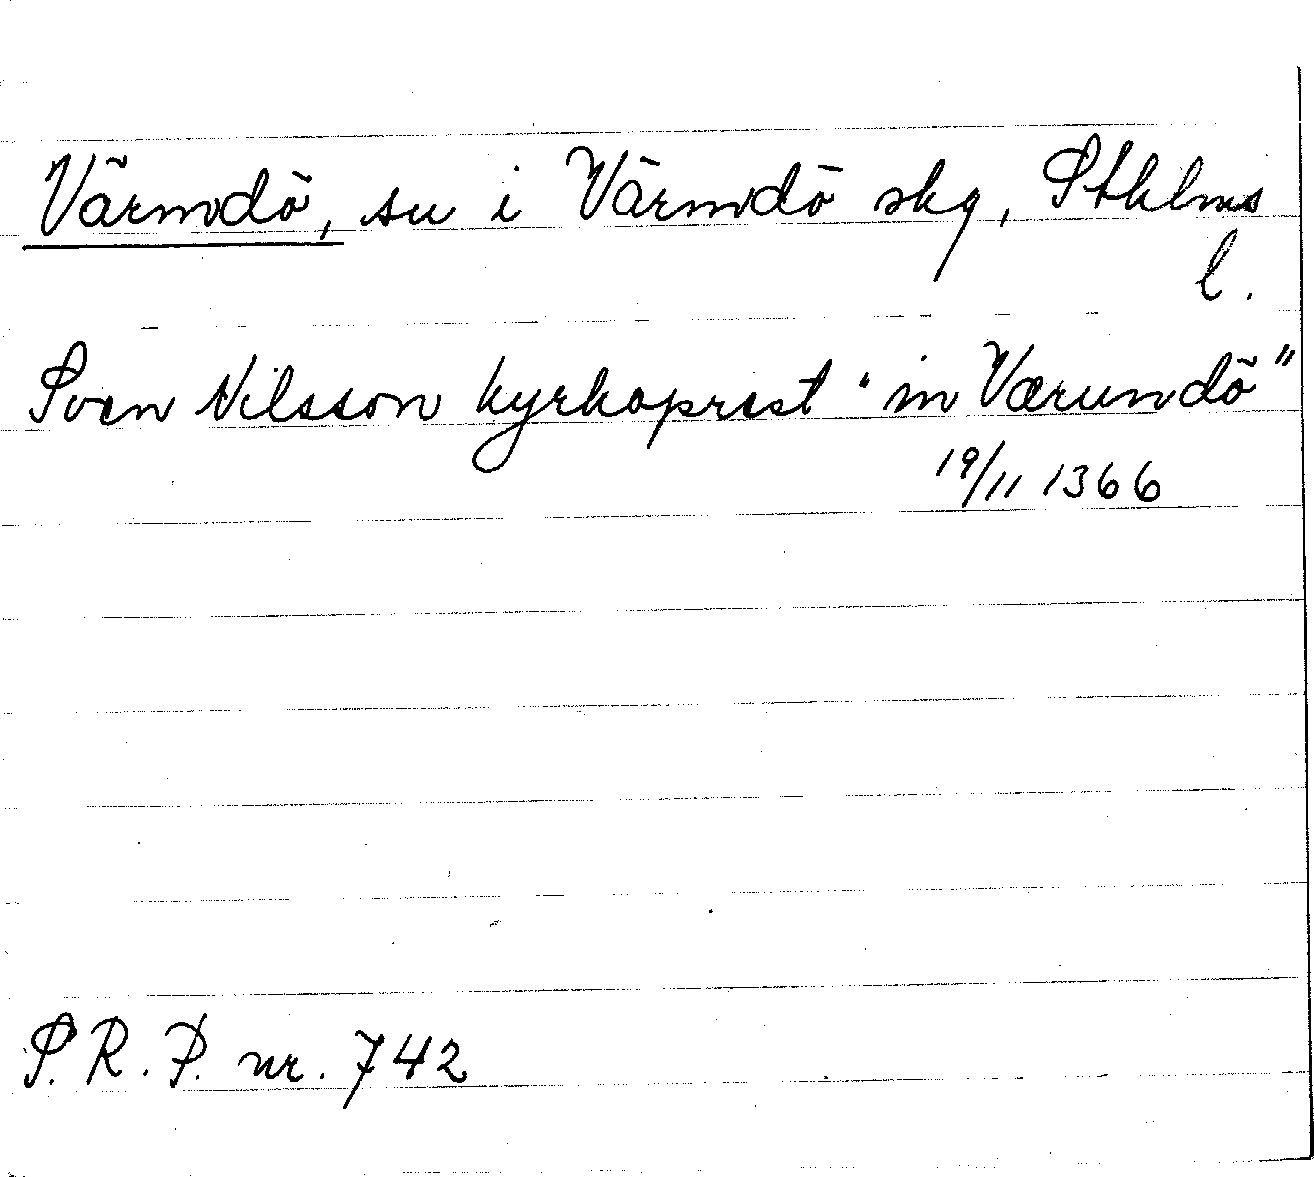 Värmdö, sn i Värmdö skg, Sthlms
l.
Sven Nilsson kyrkoprest "in Værundö"
19/11 1366
S.R.P. nr. 742